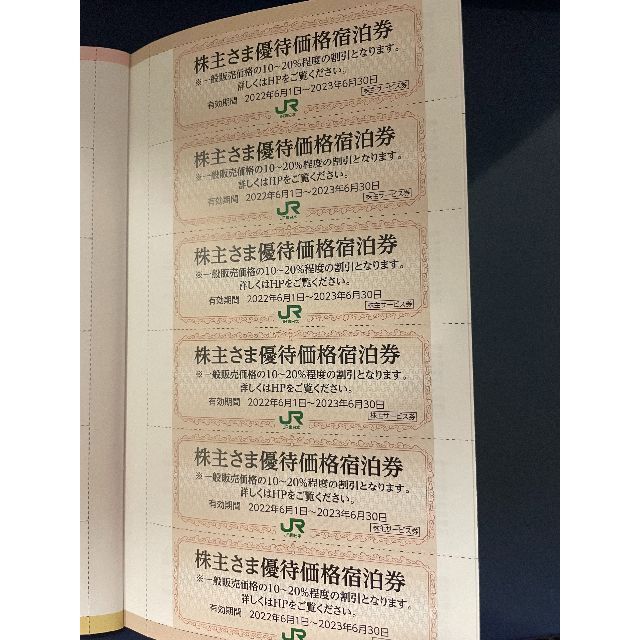 株主さま優待価格宿泊券
※一般販売価格の10~20%程度の割引となります。
詳しくはHPをご覧ください。
有効期間 2022年6月1日~2023年6月30日
株主サービス券
JR
株主さま優待価格宿泊券
※一般販売価格の10~20%程度の割引となります。
詳しくはHPをご覧ください。
有効期間 2022年6月1日~2023年6月30日
株主サービス券
JR
株主さま優待価格宿泊券
※一般販売価格の10~20%程度の割引となります。
詳しくはHPをご覧ください。
有効期間 2022年6月1日~2023年6月30日
株主サービス券
JR
株主さま優待価格宿泊券
※一般販売価格の10~20%程度の割引となります。
詳しくはHPをご覧ください。
有効期間 2022年6月1日~2023年6月30日
株主サービス券
JR
株主さま優待価格宿泊券
※一般販売価格の10~20%程度の割引となります。
詳しくはHPをご覧ください。
有効期間 2022年6月1日~2023年6月30日
株主サービス券
JR
株主さま優待価格宿泊券
※一般販売価格の10~20%程度の割引となります。
詳しくはHPをご覧ください。
有効期間 2022年6月1日~2023年6月30日
株主サービス券
JR